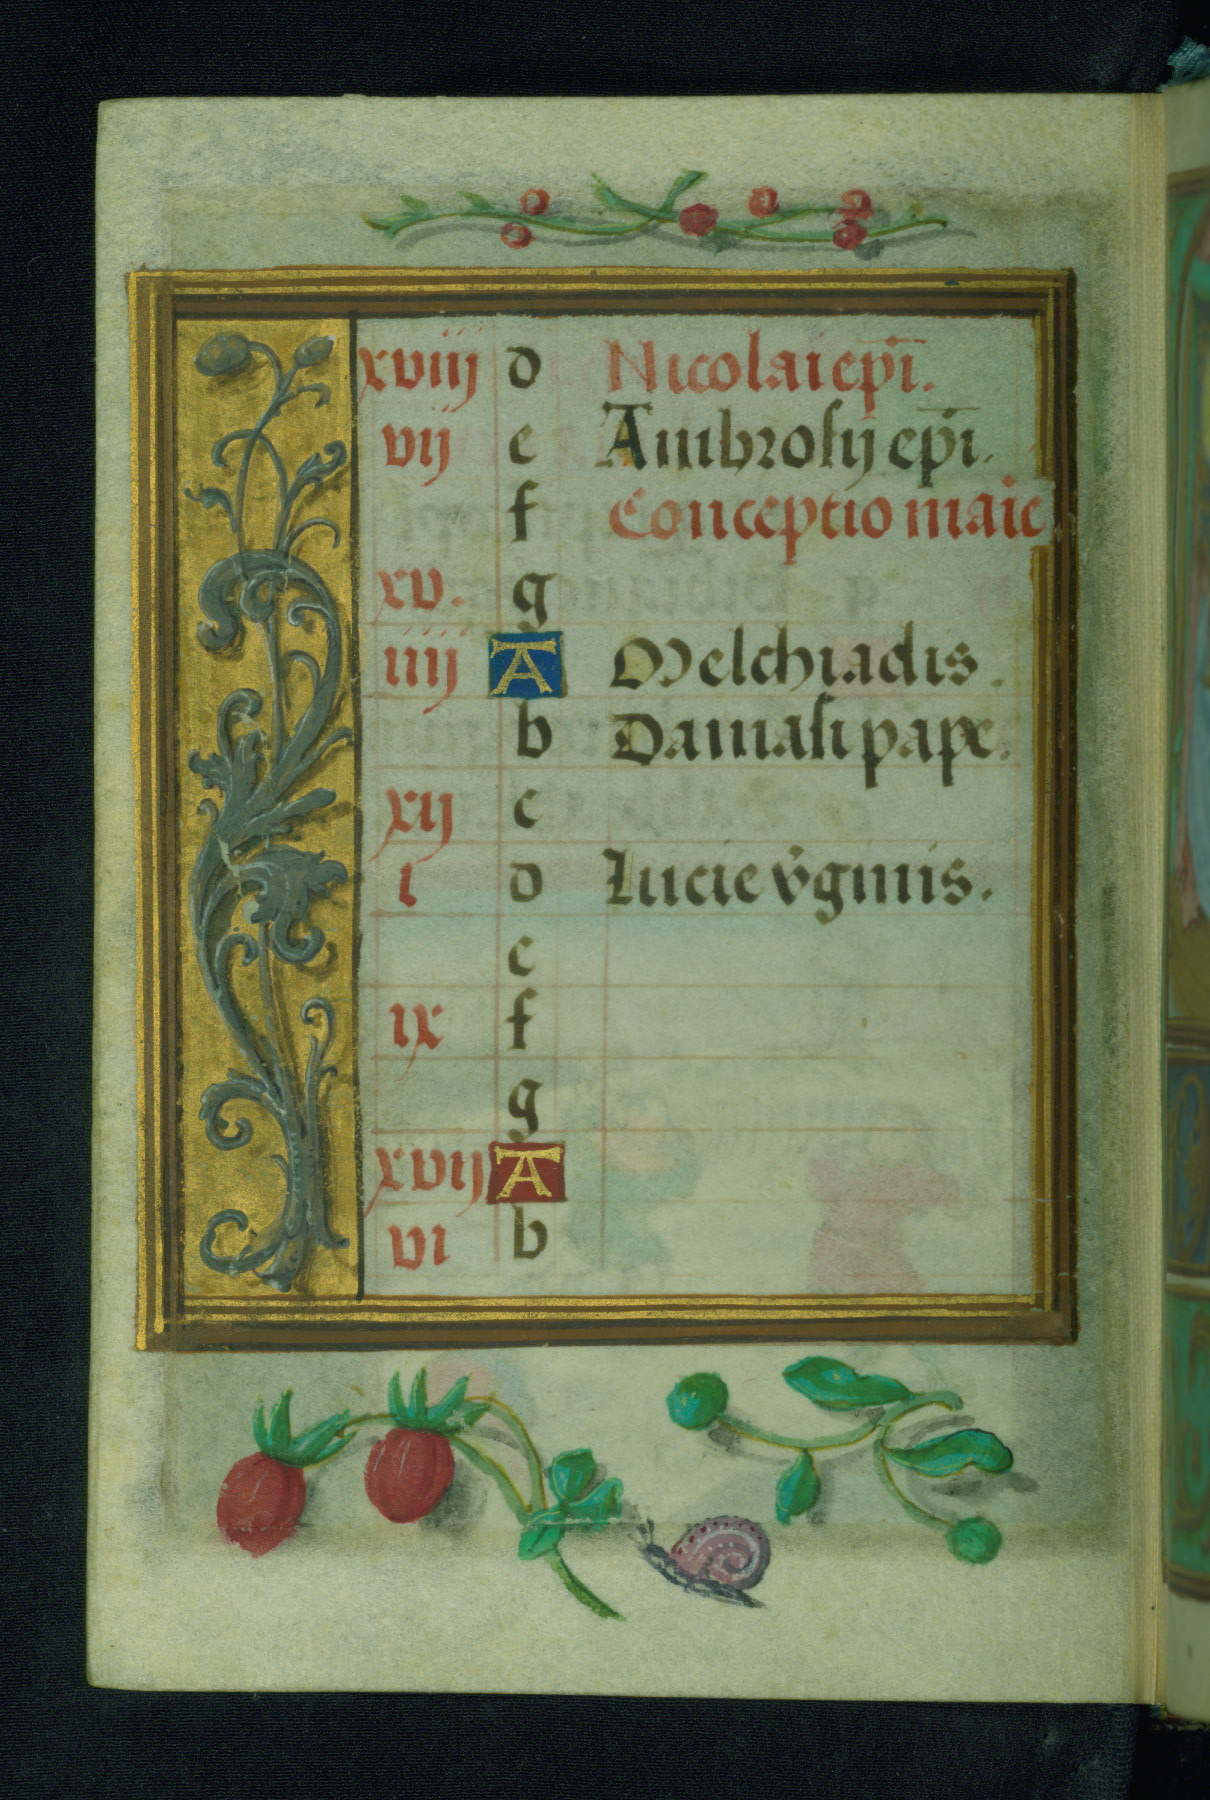 xviij d Nicolai epi.
vij e Ambrosij epi.
f Conceptio marie
xv. g
iiij A Melchiadis.
b Damasi pape.
xij c
i d Lucie v̄ginis.
e
ix f
g
xvij A
vi b